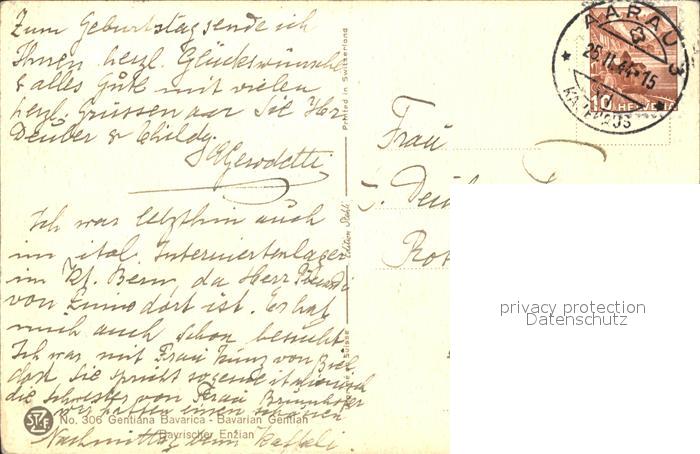 Zum Geburtstag sende ich
Ihnen herzl. Glückwünsche
& alles Gute mit vielen
herzl. Grüssen an Sie Herr
Deuber & Childy.
Ich war letzthin auch
im ital. Interniertenlager
im Kt. Bern, da Herr
von dort ist. Es hat
mich auch schon besucht
Ich war mit Frau Kunz von Biel
dort. Sie spricht italienisch
die Schwester von Frau Brunnhofer
wir hatten einen schönen
Nachmittag beim Kaffeli.
No. 306 Gentiana Bavarica - Bavarian Gentian
Bayrischer Enzian
Printed in Switzerland
Edition Stehli
Suisse
Frau
AARAU 3
25.II.44-15
10 HELVETIA
privacy protection
Datenschutz